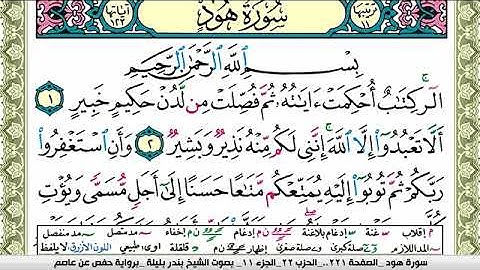 ترتيبها ١١
سُورَةُ هُودٍ
آياتها ١٢٣
بِسْمِ اللَّهِ الرَّحْمَٰنِ الرَّحِيمِ
الٓر ۚ كِتَٰبٌ أُحْكِمَتْ ءَايَٰتُهُۥ ثُمَّ فُصِّلَتْ مِن لَّدُنْ حَكِيمٍ خَبِيرٍ ١
أَلَّا تَعْبُدُوٓا۟ إِلَّا ٱللَّهَ ۚ إِنَّنِى لَكُم مِّنْهُ نَذِيرٌ وَبَشِيرٌ ٢ وَأَنِ ٱسْتَغْفِرُوا۟
رَبَّكُمْ ثُمَّ تُوبُوٓا۟ إِلَيْهِ يُمَتِّعْكُم مَّتَٰعًا حَسَنًا إِلَىٰٓ أَجَلٍ مُّسَمًّى وَيُؤْتِ
م إقلاب س غنة س إدغام بلاغنة إدغام إخفاء مد متصل مد منفصل
المد اللازم صلة كبرى صلة صغرى إظهار قلقلة اوى طبيعي اللون الأزرق لا يلفظ
سورة هود _الصفحة ٢٢١..._الحزب ٢٢_الجزء ١١_ بصوت الشيخ بندر بليلة _برواية حفص عن عاصم